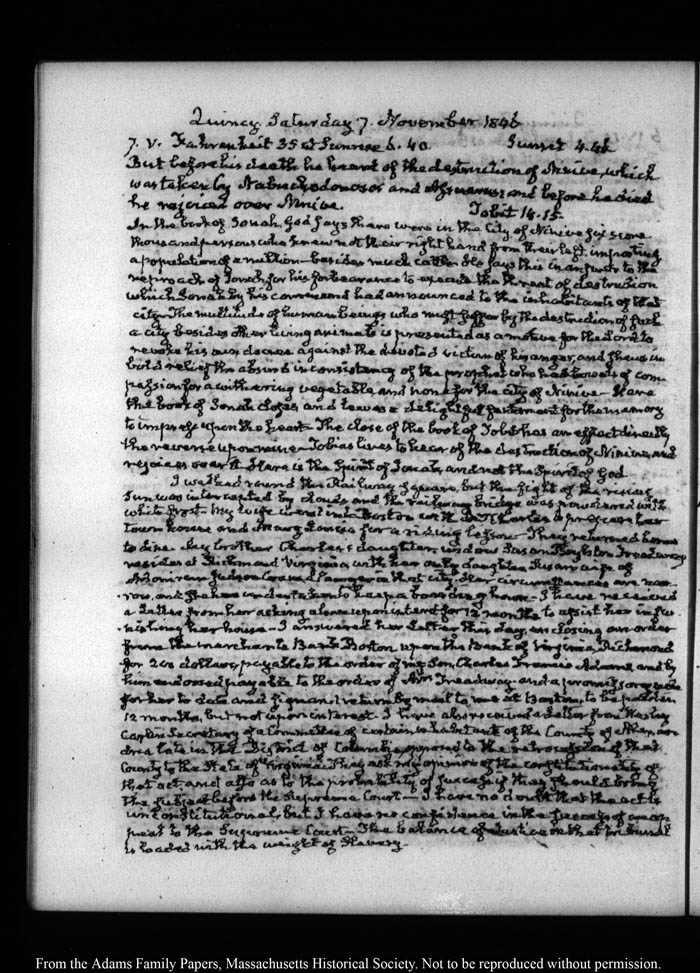 Quincy. Saturday 7. November 1846
7. V. Fahrenheit 35 at Sunrise 6. 40 Sunset 4.46
But before his death he heard of the destruction of Ninive, which
was taken by Nabuchodonosor and Assuerus; and before he died
he rejoiced over Ninive. Tobit 14-15.
In the book of Jonah, God says there were in the City of Ninive six score
thousand persons who knew not their right hand from their left, importing
a population of a million—besides much cattle. He says this in answer to the
reproach of Jonah for his forbearance to execute the threat of destruction
which Jonah by his command had announced to the inhabitants of that
city—The multitude of human beings who must suffer by the destruction of such
a city besides other living animals is presented as a motive for the Lord to
revoke his own decree against the devoted victim of his anger, and shews in
bold relief the absurd inconsistency of the prophet who had bowels of com-
passion for a withering vegetable and none for the city of Ninive—Here
the book of Jonah closes and leaves a delightful sentiment for the memory
to impress upon the heart—The close of the book of Tobit has an effect directly
the reverse upon mine—Tobias lives to hear of the destruction of Ninive, and
rejoices over it. Here is the Spirit of Jonah, and not the Spirit of God
I walked round the Railway square, but the sight of the rising
Sun was intercepted by clouds and the railway bridge was powdered with
white frost. My wife went into Boston with Charles to her
town house and Mary Louisa for a riding lesson—They returned home
to dine. My brother Charles's daughter, widow Susan Boylston Treadway
resides at Richmond Virginia, with her only daughter Susan wife of
Judson Crane a Lawyer in that city. Her circumstances are nar-
row, and she has undertaken to keep a boarding house—I have received
a Letter from her asking a loan upon interest for 12 months to assist her in fur-
nishing her house—I answered her Letter this day, enclosing an order
from the merchants Bank Boston upon the Bank of Virginia, Richmond
for 200 dollars, payable to the order of my Son, Charles Francis Adams, and by
him endorsed payable to the order of Mrs Treadway—and a promissory note
for her to date and sign and return by mail to me at Boston, to be paid in
12 months, but not upon interest. I have also received a letter from Wesley
Carlin Secretary of a Committee of certain inhabitants of the County of Alexan-
dria late in the District of Columbia opposed to the retrocession of that
County to the State of Virginia. They ask my opinion of the constitutionality of
that act, and also as to the probability of success if they should bring
the subject before the Supreme Court—I have no doubt that the act is
unconstitutional, but I have no confidence in the success of an ap-
peal to the Supreme Court—The balance of Justice in that tribunal
is loaded with the weight of Slavery.
From the Adams Family Papers, Massachusetts Historical Society. Not to be reproduced without permission.